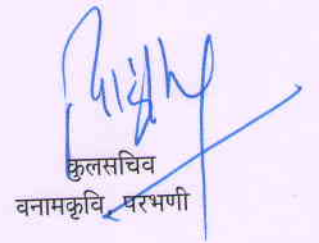 कुलसचिव
वनामकृवि, परभणी